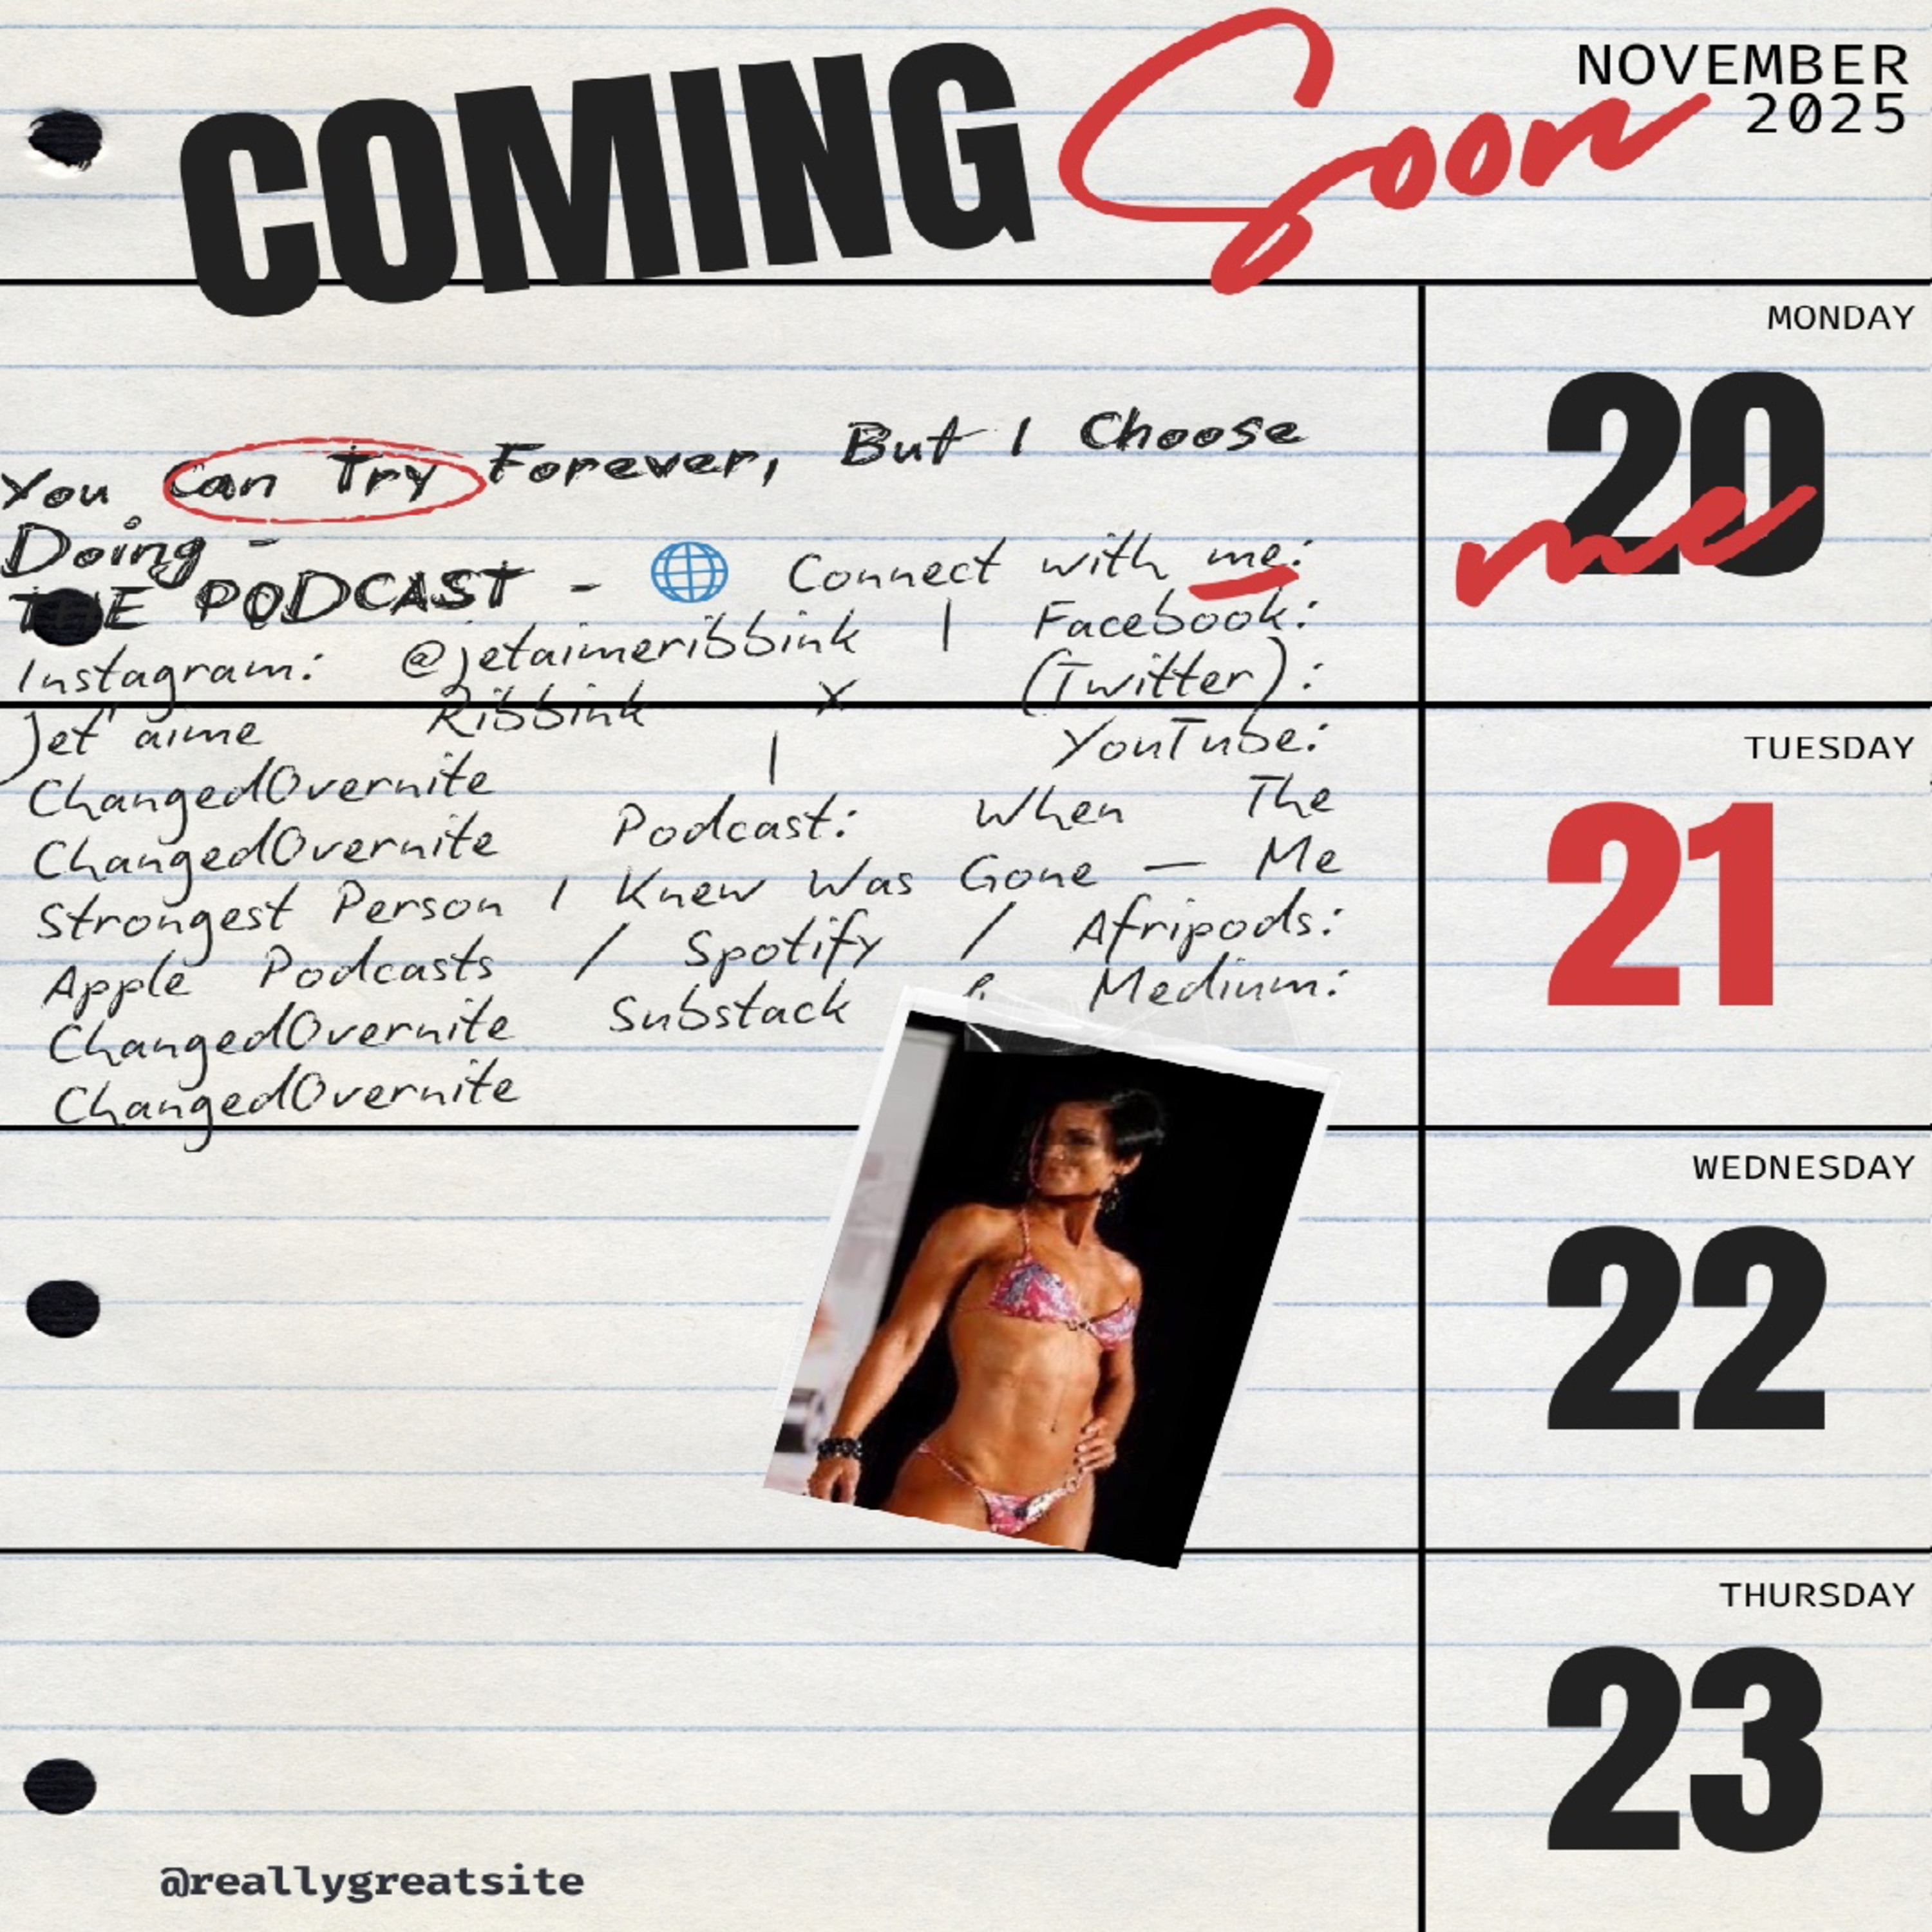 COMING Soon
NOVEMBER
2025
MONDAY
20
me
You Can Try Forever, But I Choose
Doing -
THE PODCAST - Connect with me:
Instagram: @jetaimeribbink | Facebook:
Jet'aime Ribbink X (Twitter):
ChangedOvernite | YouTube:
ChangedOvernite Podcast: When The
Strongest Person I Knew Was Gone — Me
Apple Podcasts / Spotify / Afripods:
ChangedOvernite Substack & Medium:
ChangedOvernite
TUESDAY
21
WEDNESDAY
22
THURSDAY
23
@reallygreatsite